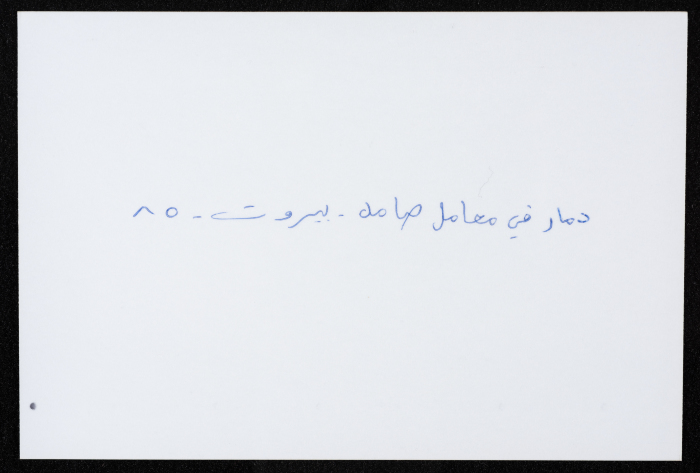 دمار في معامل صامد - بيروت - ٨٥